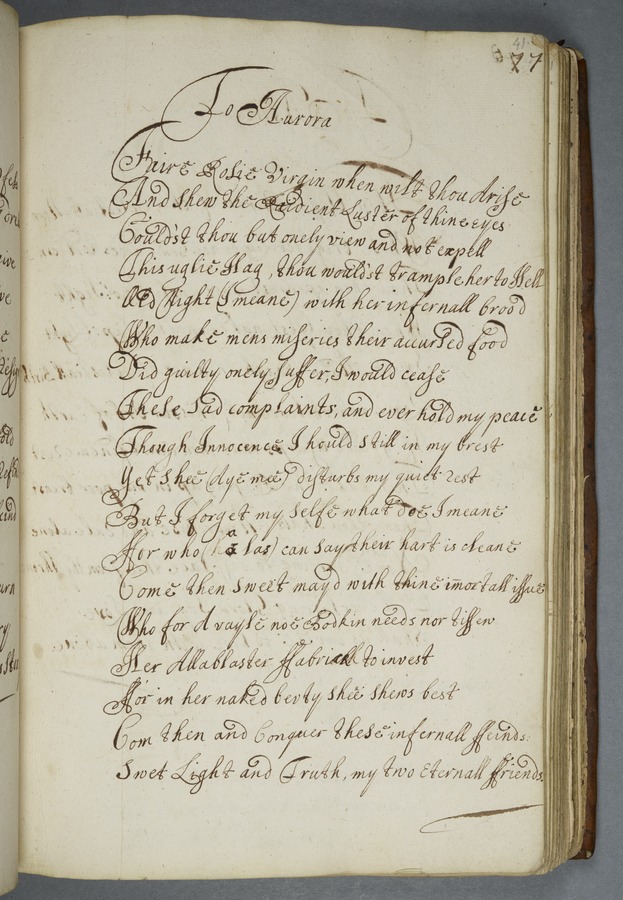 41
77
To Aurora
Faire Rosie Virgin when wilt thou Arise
And shew the Raidient Luster of thine eyes
Could'st thou but onely view and not expell
This uglie Hag, thou would'st trample her to Hell
Old Night (I meane) with her infernall brood
Who make mens miseries their accursed food
Did guilty onely suffer, I would cease
These sad complaints, and ever hold my peace
Though Innocence should still in my brest
Yet shee (aye mee) disturbs my quiet rest
But I forget my selfe what doe I meane
For who (a las) can say their hart is cleane
Come then sweet may'd with thine immortall issue
Who for A vayle noe Bodkin needs nor tissew
Her Allablaster ffabrick to invest
ffor in her naked bevty shee shews best
Com then and Conquer these infernall ffeinds:
Swet Light and Truth, my two Eternall ffriends.